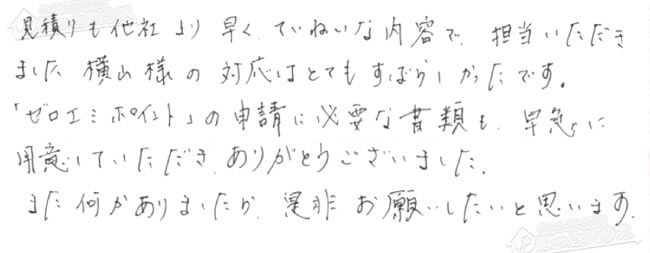 見積りも他社より早く、ていねいな内容で、担当いただき
ました横山様の対応はとてもすばらしかったです。
「ゼロエミポイント」の申請に必要な書類も、早急に
用意していただき、ありがとうございました。
また何かありましたら、是非お願いしたいと思います。